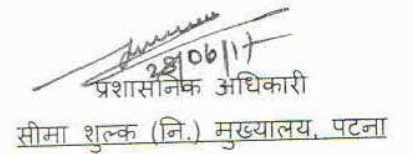 28/06/17
प्रशासनिक अधिकारी
सीमा शुल्क (नि.) मुख्यालय, पटना